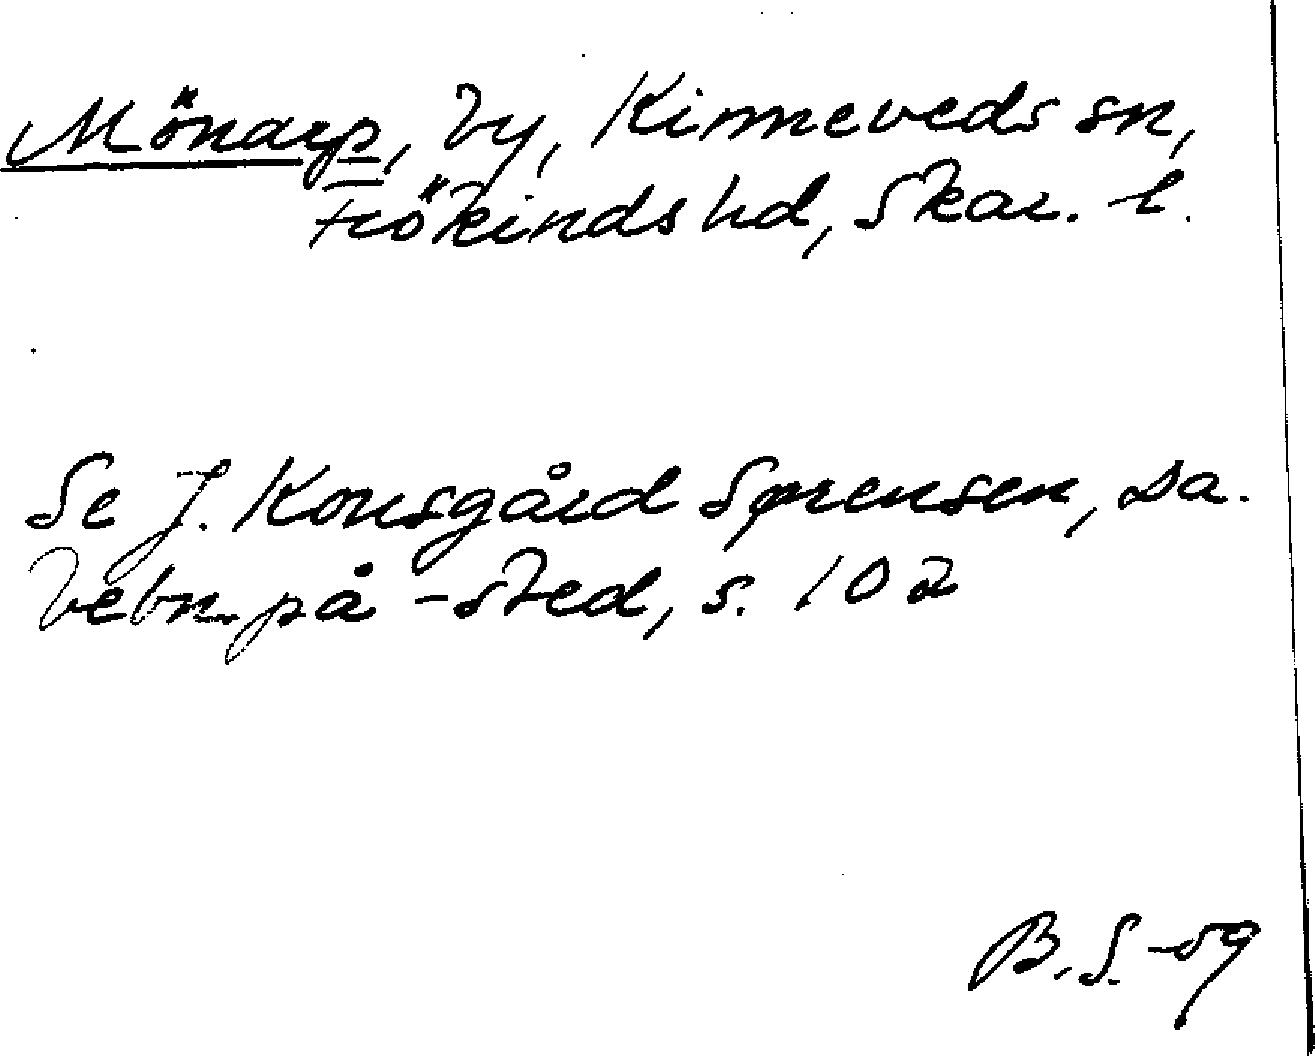 Mönarp, by, Kinneveds sn,
Frökinds hd, Skar. l.
Se J. Kousgård Sørensen, Da.
bebn. på -sted, s. 102
B. S. -59